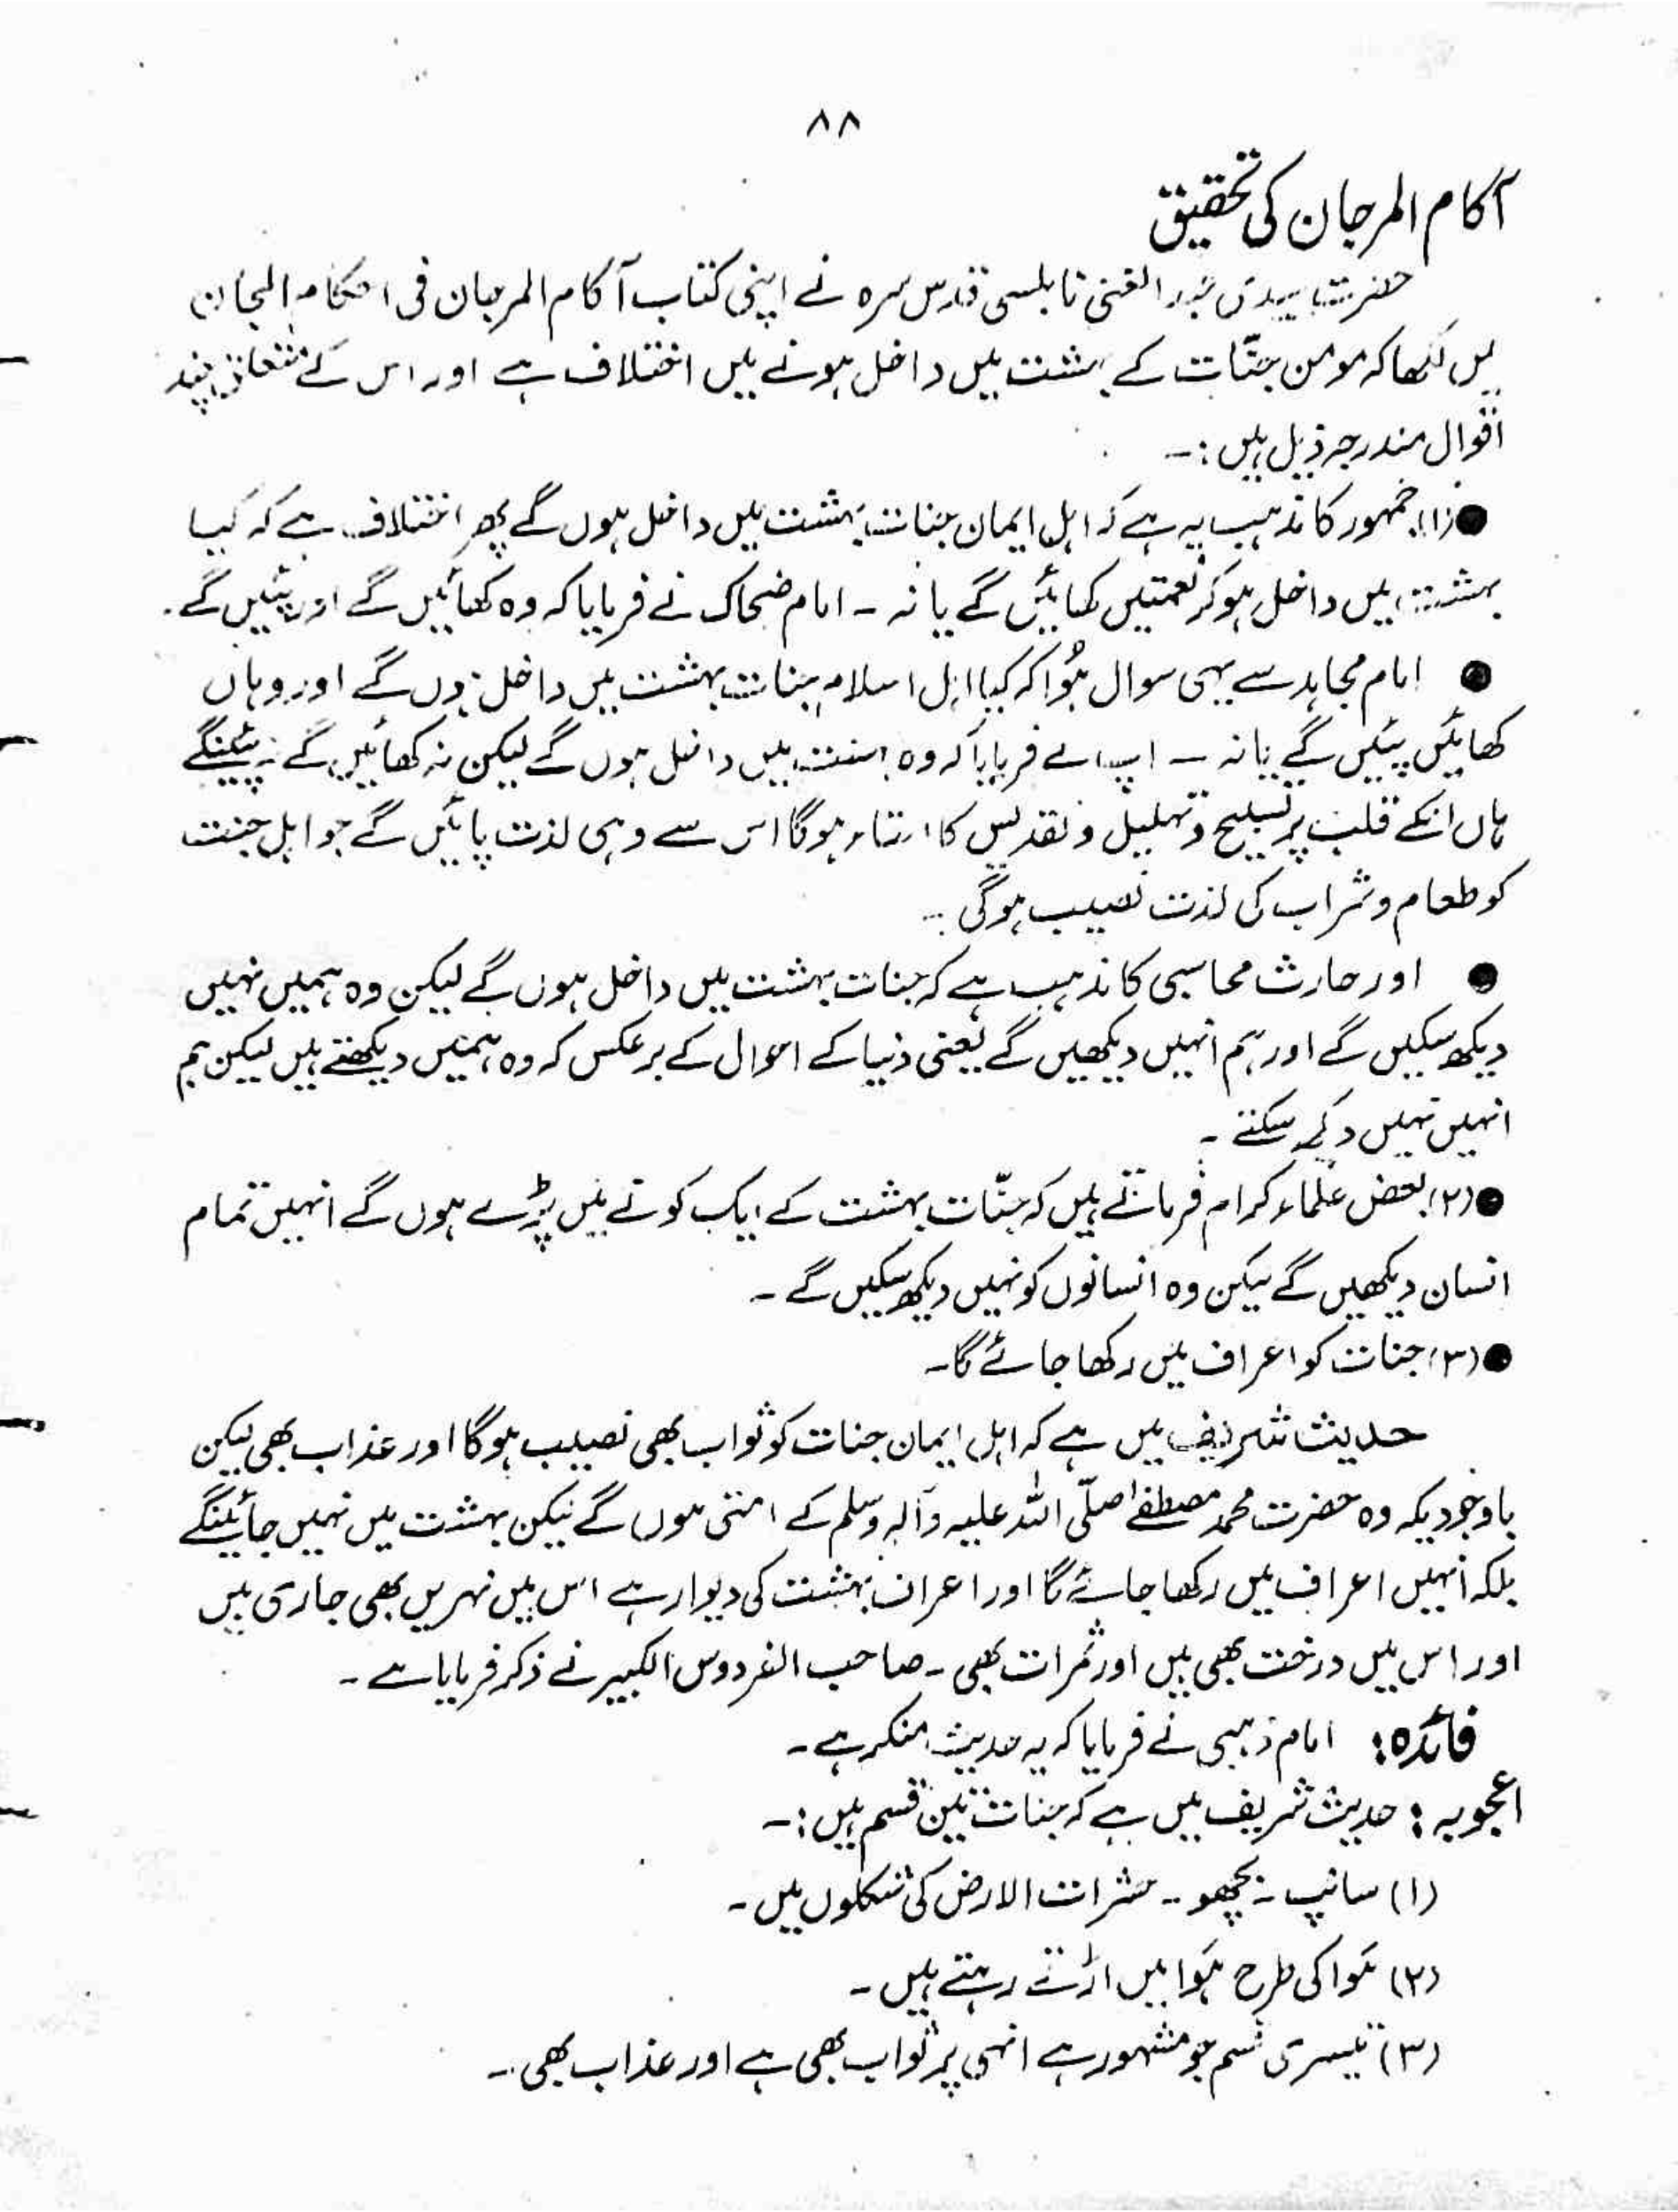 ۸۸
آکام المرجان کی تحقیق
حضرت سیدی عبد الغنی نابلسی قدس سرہ نے اپنی کتاب آکام المرجان فی احکام الجان
میں لکھا کہ مومن جنّات کے بہشت میں داخل ہونے میں اختلاف ہے اور اس کے متعلق چند
اقوال مندرجہ ذیل ہیں :-
● (۱) جمہور کا مذہب یہ ہے کہ اہل ایمان جنات بہشت میں داخل ہوں گے پھر اختلاف ہے کہ کیا
بہشت میں داخل ہو کر نعمتیں کھائیں گے یا نہ - امام ضحاک نے فرمایا کہ وہ کھائیں گے اور پئیں گے.
● امام مجاہد سے یہی سوال ہُوا کہ کیا اہل اسلام جنات بہشت میں داخل ہوں گے اور وہاں
کھائیں پئیں گے یا نہ - آپ نے فرمایا کہ وہ بہشت میں داخل ہوں گے لیکن نہ کھائیں گے نہ پئینگے
ہاں انکے قلب پر تسبیح و تہلیل و تقدیس کا ہوگا اس سے وہی لذت پائیں گے جو اہل جنت
کو طعام و شراب کی لذت نصیب ہوگی -
● اور حارث محاسبی کا مذہب ہے کہ جنات بہشت میں داخل ہوں گے لیکن وہ ہمیں نہیں
دیکھ سکیں گے اور ہم انہیں دیکھیں گے یعنی دنیا کے احوال کے برعکس کہ وہ ہمیں دیکھتے ہیں لیکن ہم
انہیں نہیں دیکھ سکتے -
● (۲) بعض علماء کرام فرماتے ہیں کہ جنّات بہشت کے ایک کونے میں پڑے ہوں گے انہیں تمام
انسان دیکھیں گے لیکن وہ انسانوں کو نہیں دیکھ سکیں گے -
● (۳) جنات کو اعراف میں رکھا جائے گا -
حدیث شریف میں ہے کہ اہل ایمان جنات کو ثواب بھی نصیب ہوگا اور عذاب بھی لیکن
باوجودیکہ وہ حضرت محمد مصطفےٰ صلّی اللہ علیہ وآلہ وسلم کے امتی ہوں گے لیکن بہشت میں نہیں جائینگے
بلکہ انہیں اعراف میں رکھا جائے گا اور اعراف بہشت کی دیوار ہے اس میں نہریں بھی جاری ہیں
اور اس میں درخت بھی ہیں اور ثمرات بھی - صاحب الفردوس الکبیر نے ذکر فرمایا ہے -
فائدہ : امام ذہبی نے فرمایا کہ یہ حدیث منکر ہے -
اعجوبہ : حدیث شریف میں ہے کہ جنات تین قسم ہیں :-
(۱) سانپ - بچھو - حشرات الارض کی شکلوں میں -
(۲) ہَوا کی طرح ہَوا میں اڑتے رہتے ہیں -
(۳) تیسری قسم جو مشہور ہے انہی پر ثواب بھی ہے اور عذاب بھی -